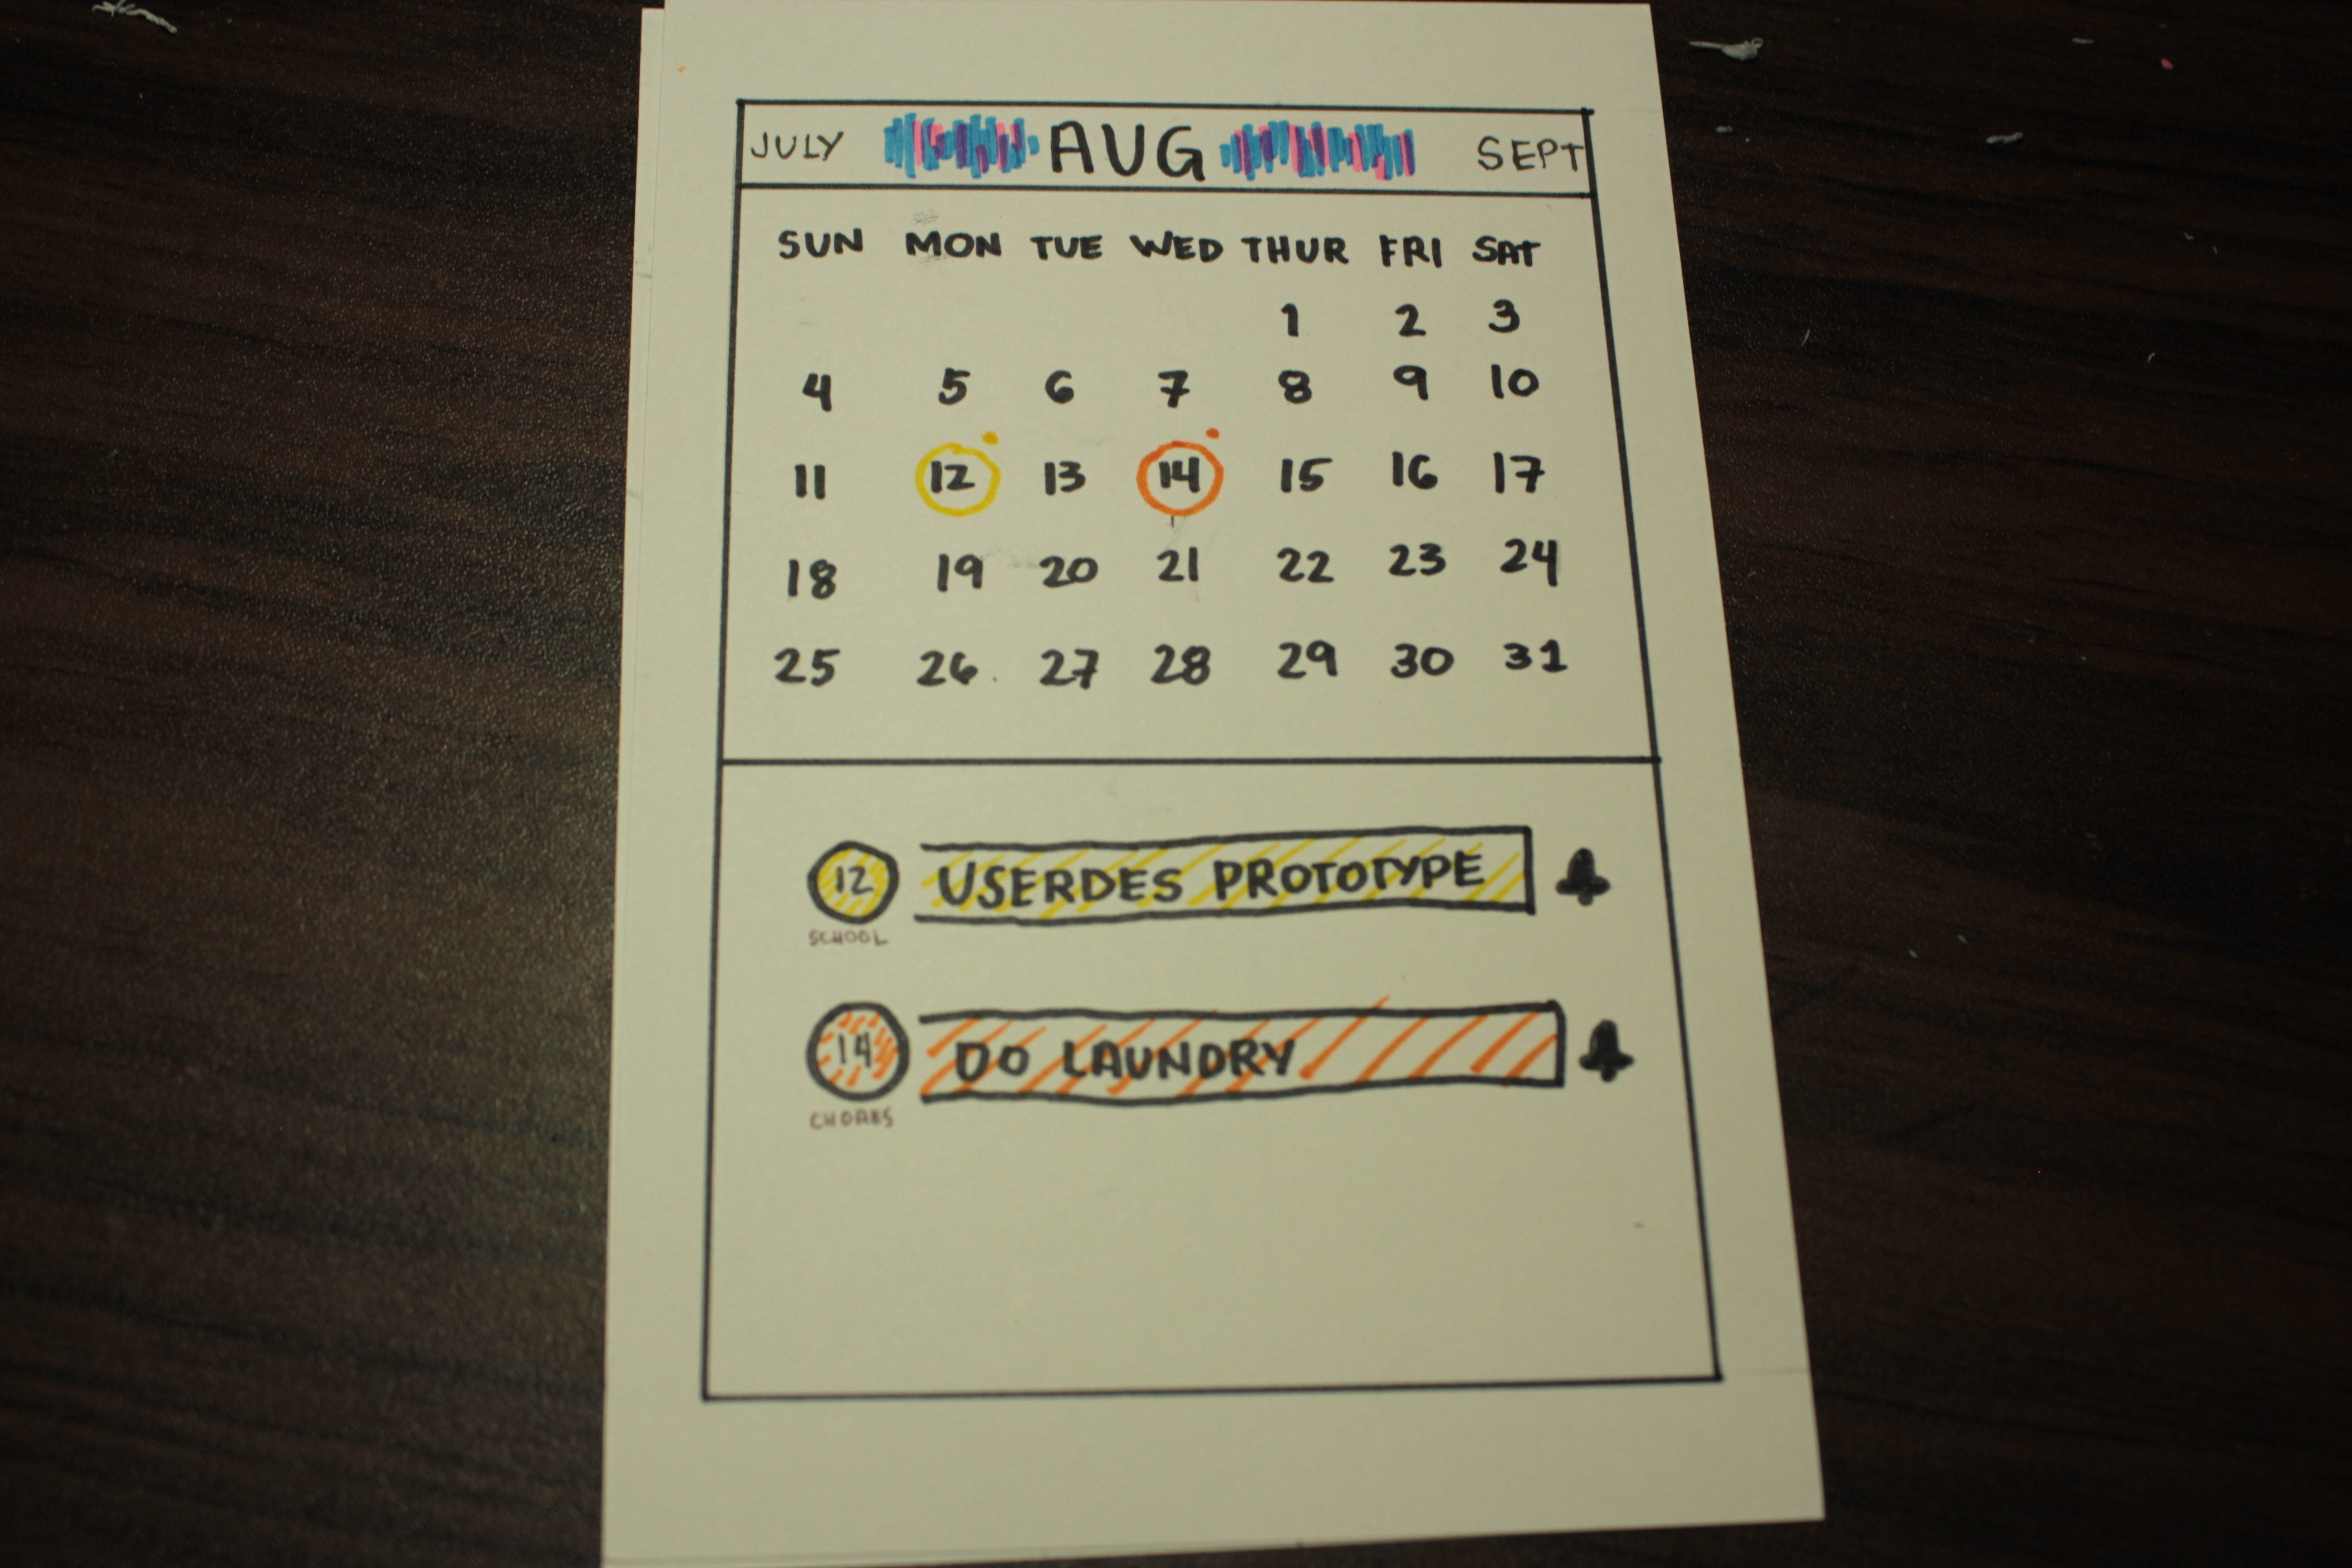 JULY AUG SEPT
SUN MON TUE WED THUR FRI SAT
1 2 3
4 5 6 7 8 9 10
11 12 13 14 15 16 17
18 19 20 21 22 23 24
25 26 27 28 29 30 31
12 USERDES PROTOTYPE
SCHOOL
14 DO LAUNDRY
CHORES